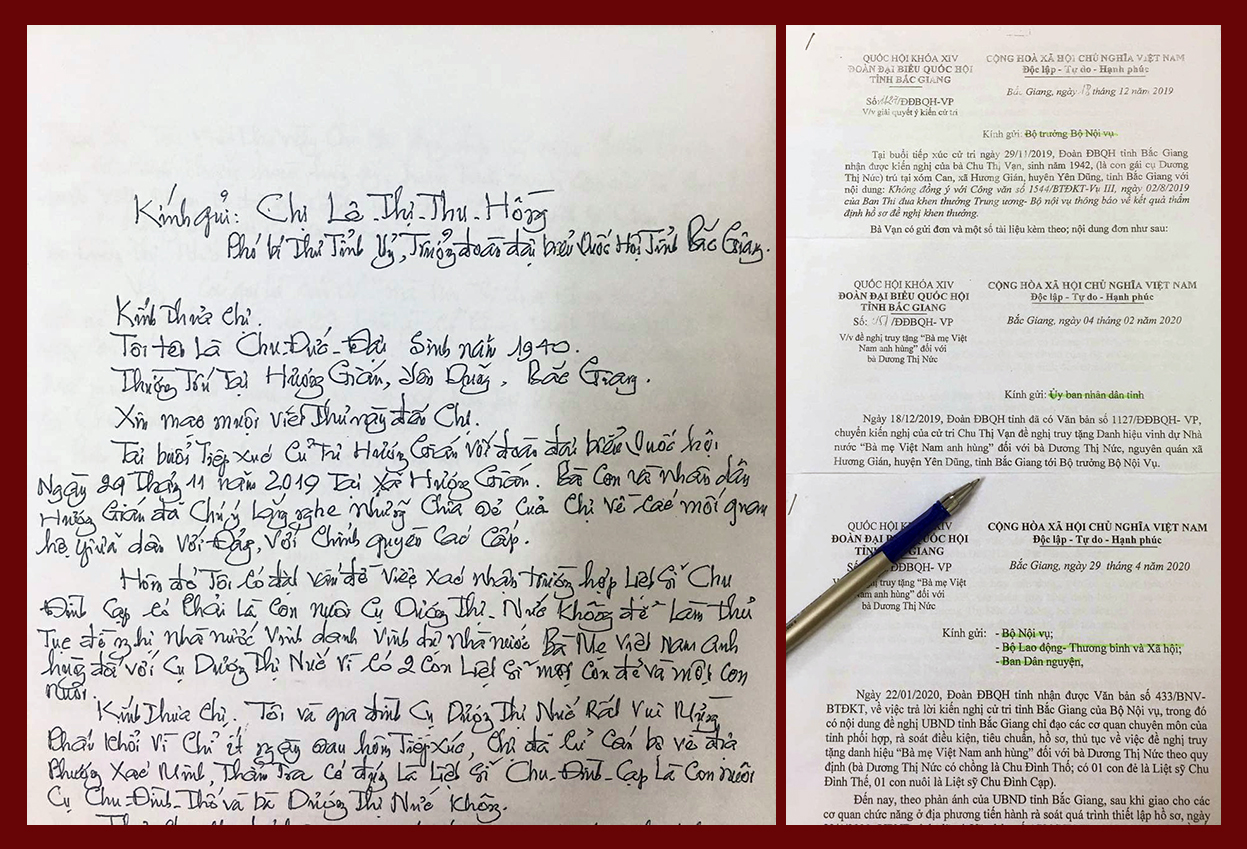 Kính gửi: Chị Lê Thị Thu Hồng
Phó bí thư Tỉnh ủy, Trưởng đoàn đại biểu Quốc Hội Tỉnh Bắc Giang.
Kính thưa chị.
Tôi tên là Chu Đức Đại Sinh năm 1940.
Thường trú tại Hương Gián, Yên Dũng, Bắc Giang.
Xin mạo muội viết thư này đến chị.
Tại buổi tiếp xúc cử tri Hương Gián với đoàn đại biểu Quốc hội
Ngày 29 tháng 11 năm 2019 tại xã Hương Gián. Bà con và nhân dân
Hương Gián đã chú ý lắng nghe những chia sẻ của chị về các mối quan
hệ giữa dân với Đảng, với chính quyền các cấp.
Hôm đó tôi có đặt vấn đề việc xác nhận trường hợp Liệt sĩ Chu
Đình Cạp có phải là con nuôi cụ Dương Thị Nức không để làm thủ
tục đề nghị nhà nước vinh danh vinh dự nhà nước Bà Mẹ Việt Nam anh
hùng đối với cụ Dương Thị Nức vì có 2 con Liệt sĩ một con đẻ và một con
nuôi.
Kính thưa chị. Tôi và gia đình cụ Dương Thị Nức rất vui mừng
phấn khởi vì chỉ ít ngày sau hôm tiếp xúc, chị đã cử cán bộ về địa
phương xác minh, thẩm tra có đúng là Liệt sĩ Chu Đình Cạp là con nuôi
cụ Chu Đình Thế và bà Dương Thị Nức không.
QUỐC HỘI KHÓA XIV
ĐOÀN ĐẠI BIỂU QUỐC HỘI
TỈNH BẮC GIANG
Số: /ĐĐBQH-VP
V/v giải quyết ý kiến cử tri
CỘNG HOÀ XÃ HỘI CHỦ NGHĨA VIỆT NAM
Độc lập - Tự do - Hạnh phúc
Bắc Giang, ngày 18 tháng 12 năm 2019
Kính gửi: Bộ trưởng Bộ Nội vụ
Tại buổi tiếp xúc cử tri ngày 29/11/2019, Đoàn ĐBQH tỉnh Bắc Giang
nhận được kiến nghị của bà Chu Thị Vạn, sinh năm 1942, (là con gái cụ Dương
Thị Nức) trú tại xóm Can, xã Hương Gián, huyện Yên Dũng, tỉnh Bắc Giang với
nội dung: Không đồng ý với Công văn số 1544/BTĐKT-Vụ III, ngày 02/8/2019
của Ban Thi đua khen thưởng Trung ương- Bộ nội vụ thông báo về kết quả thẩm
định hồ sơ đề nghị khen thưởng.
Bà Vạn có gửi đơn và một số tài liệu kèm theo; nội dung đơn như sau:
QUỐC HỘI KHÓA XIV
ĐOÀN ĐẠI BIỂU QUỐC HỘI
TỈNH BẮC GIANG
Số: /ĐĐBQH- VP
V/v đề nghị truy tặng "Bà mẹ Việt
Nam anh hùng" đối với
bà Dương Thị Nức
CỘNG HÒA XÃ HỘI CHỦ NGHĨA VIỆT NAM
Độc lập - Tự do - Hạnh phúc
Bắc Giang, ngày 04 tháng 02 năm 2020
Kính gửi: Ủy ban nhân dân tỉnh
Ngày 18/12/2019, Đoàn ĐBQH tỉnh đã có Văn bản số 1127/ĐĐBQH- VP,
chuyển kiến nghị của cử tri Chu Thị Vạn đề nghị truy tặng Danh hiệu vinh dự Nhà
nước "Bà mẹ Việt Nam anh hùng" đối với bà Dương Thị Nức, nguyên quán xã
Hương Gián, huyện Yên Dũng, tỉnh Bắc Giang tới Bộ trưởng Bộ Nội Vụ.
QUỐC HỘI XIV
ĐOÀN ĐẠI BIỂU QUỐC HỘI
GIANG
/ĐĐBQH- VP
nghị truy tặng "Bà mẹ Việt
Nam anh hùng" đối với
bà Dương Thị Nức
CỘNG HÒA XÃ HỘI CHỦ NGHĨA VIỆT NAM
Độc lập - Tự do - Hạnh phúc
Bắc Giang, ngày 29 tháng 4 năm 2020
Kính gửi: - Bộ Nội vụ;
- Bộ Lao động- Thương binh và Xã hội;
- Ban Dân nguyện,
Ngày 22/01/2020, Đoàn ĐBQH tỉnh nhận được Văn bản số 433/BNV-
BTĐKT, về việc trả lời kiến nghị cử tri tỉnh Bắc Giang của Bộ Nội vụ, trong đó
có nội dung đề nghị UBND tỉnh Bắc Giang chỉ đạo các cơ quan chuyên môn của
tỉnh phối hợp, rà soát điều kiện, tiêu chuẩn, hồ sơ, thủ tục về việc đề nghị truy
tặng danh hiệu "Bà mẹ Việt Nam anh hùng" đối với bà Dương Thị Nức theo quy
định (bà Dương Thị Nức có chồng là Chu Đình Thế; có 01 con đẻ là Liệt sỹ Chu
Đình Thế, 01 con nuôi là Liệt sỹ Chu Đình Cạp).
Đến nay, theo phản ánh của UBND tỉnh Bắc Giang, sau khi giao cho các
cơ quan chức năng ở địa phương tiến hành rà soát quá trình thiết lập hồ sơ, ngày